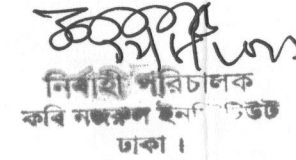 নির্বাহী পরিচালক
কবি নজরুল ইনস্টিটিউট
ঢাকা ।